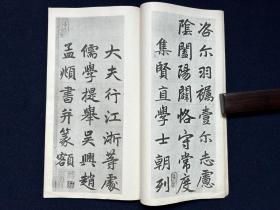 咨尔羽襟壹尔志慮
陰闔陽闢恪守常度
集賢直學士朝列
大夫行江浙等處
儒學提舉吳興趙
孟頫書并篆額